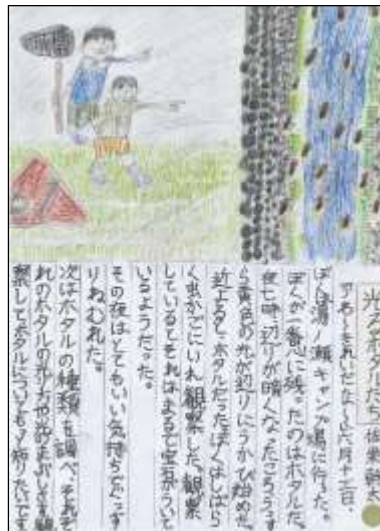 光るホタルたち 佐栗幹太
「わあ〜きれいだな〜」六月十二日、
ぼくは湯ノ瀬キャンプ場に行った。
ぼくが一番心に残ったのはホタルだ。
夜七時、辺りが暗くなったころ、うす
ら黄色の光が辺りにうかび始めた。
近よると、ホタルだった。ぼくはしばら
く虫かごにいれ観察した。観察
しているとそれはまるで宝石がういて
いるようだった。
その夜はとてもいい気持ちでぐっす
りねむれた。
次はホタルの種類を調べ、それぞ
れのホタルの光り方や光のまぶしさを観
察してホタルについてもっと知りたいです